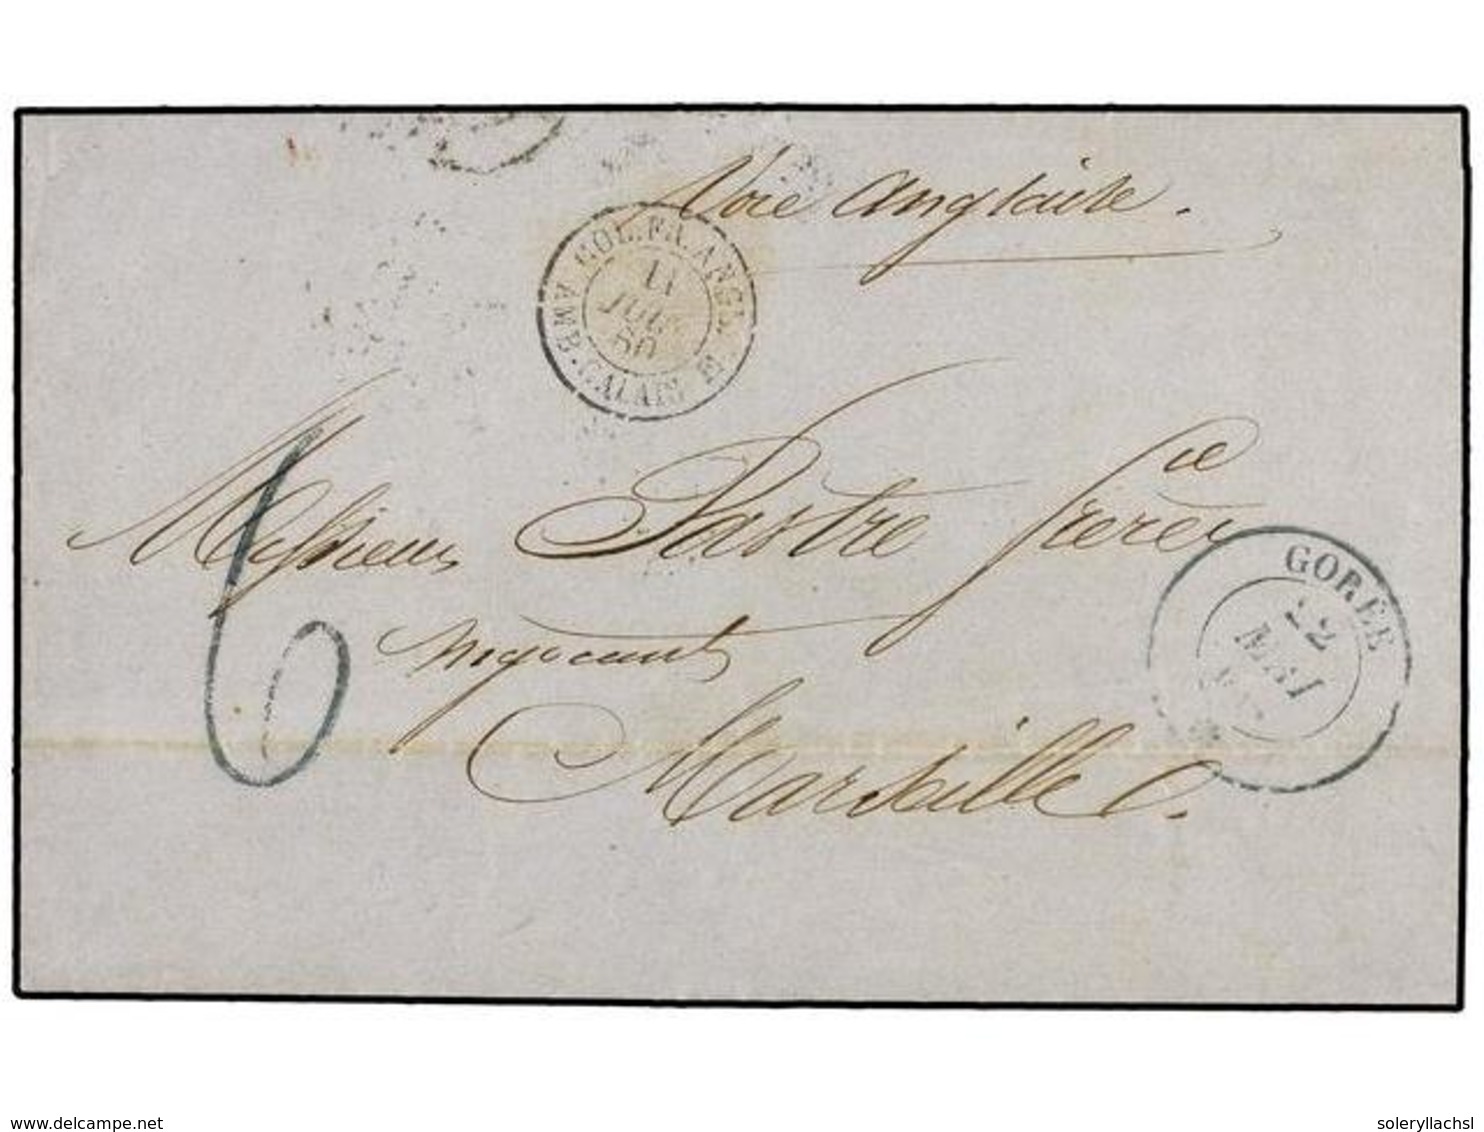 Voie Anglaise.
COL. FR. ANGL.
11
JUIL
60
AMB. CALAIS E
Messieurs Pastré frères
6
négociants
Marseille.
GORÉE
22
MAI
delcampe.net
soleryllachsl